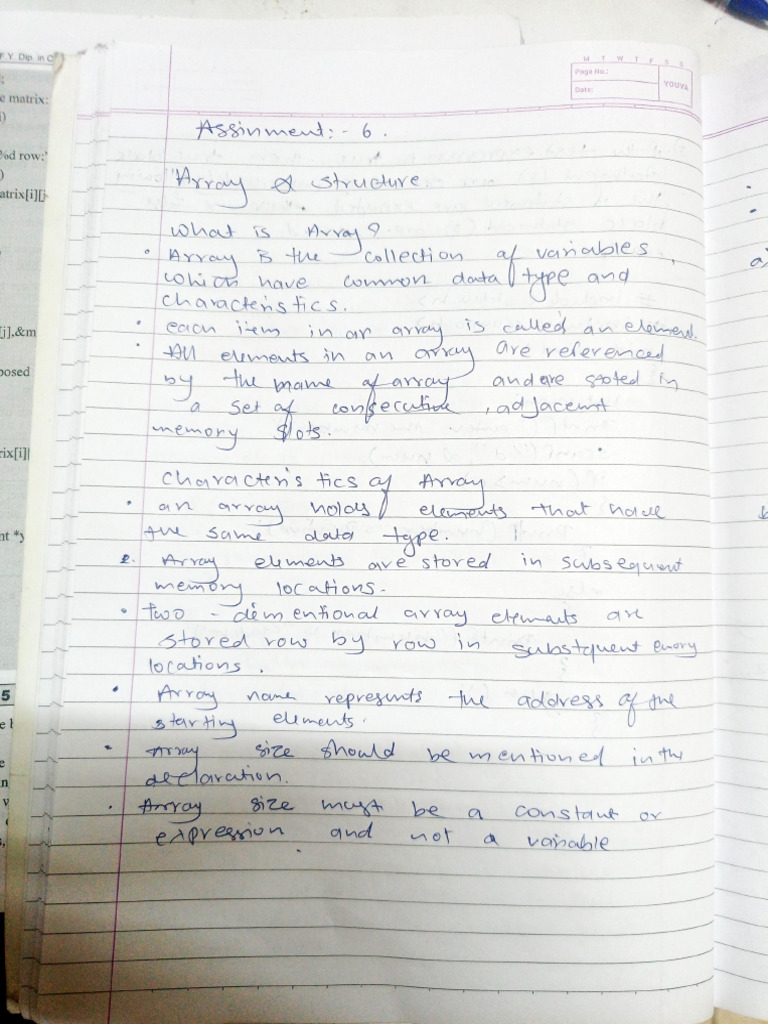 F.Y. Dip. in C
e matrix:
%d row:"
atrix[i][j
[j],&m
posed
rix[i][
nt *y
5
M T W T F S S
Page No.:
Date:
YOUVA
Assinment:- 6.
Array & structure.
What is Array?
• Array is the collection of variables,
which have common data type and
characteristics.
• each item in ar array is called an element.
• All elements in an array are referenced
by the name of array and are stoted in
a set of consecutive, adjacemt
memory slots.
characteristics of Array
• an array holds elements that have
the same data type.
2. Array elements are stored in subsequent
memory locations.
• two - dimentional array elements are
stored row by row in substquent emory
locations.
• Array name represents the address of the
starting elements.
• Array size should be mentioned in the
declaration.
• Array size must be a constant or
expression and not a variable